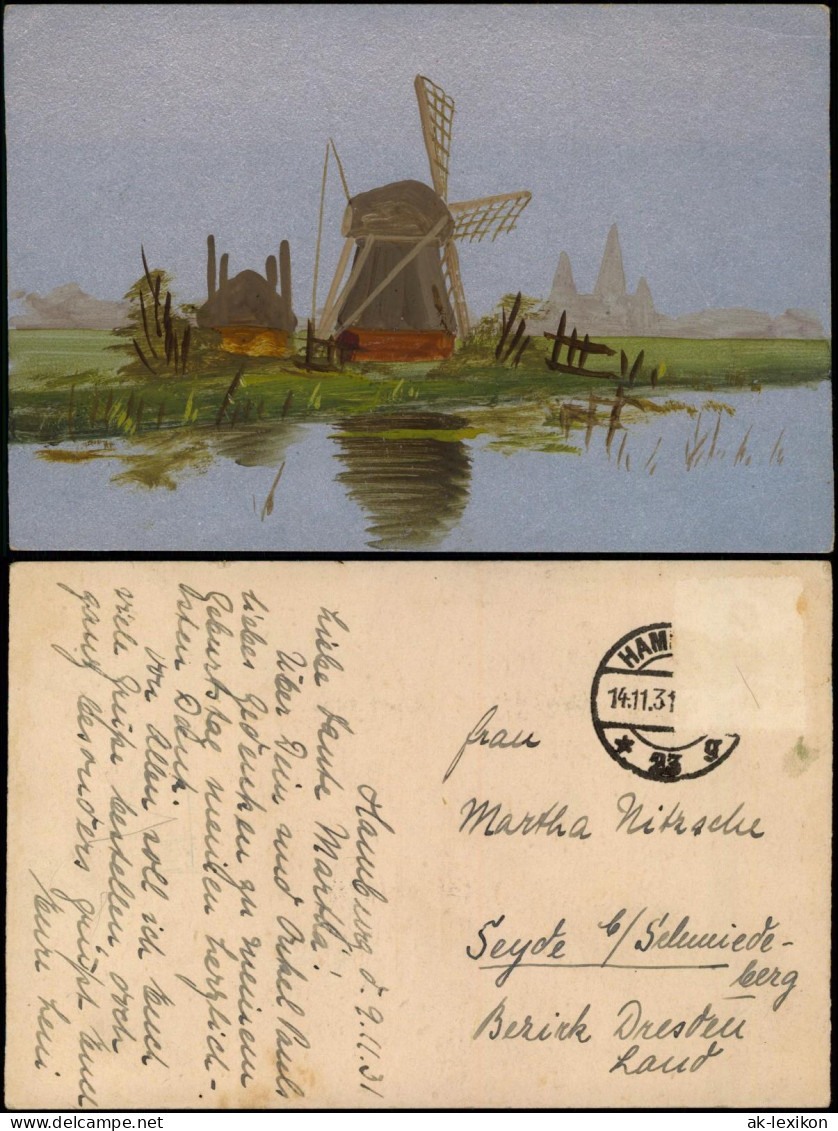 Hamburg d. 9.11.31
Liebe Tante Martha!
Über Dein und Onkel Pauls
liebes Gedenken zu meinem
Geburtstag meinen herzlich-
sten Dank.
Von Allen soll ich Euch
viele Grüße bestellen doch
ganz besonders grüßt Euch
Eure Leni
HAM
14.11.31
* 23 g
Frau
Martha Nitzsche
Seyde b/Schmiede-
berg
Bezirk Dresden
Land
ak-lexikon